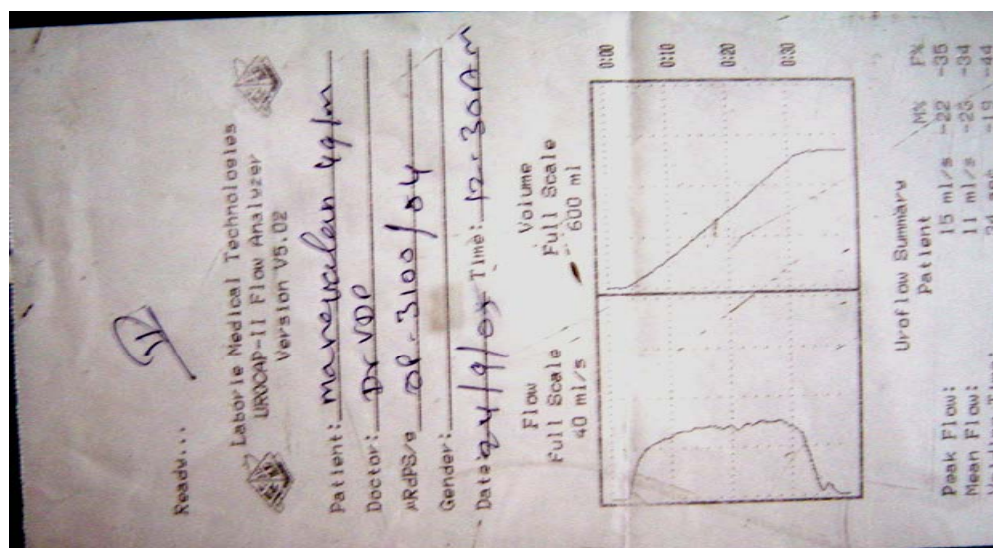 Ready...
Laborie Medical Technologies
UROCAP-II Flow Analyzer
Version V5.02
Patient: Manavalan 49/m
Doctor: Dr VDP
OP-3100/04
Gender:
Date: 24/9/04 Time: 12.30AM
Flow Volume
Full Scale Full Scale
40 ml/s 600 ml
0:00
0:10
0:20
0:30
Uroflow Summary
Patient M% F%
Peak Flow: 15 ml/s -22 -35
Mean Flow: 11 ml/s -25 -34
-19 -44